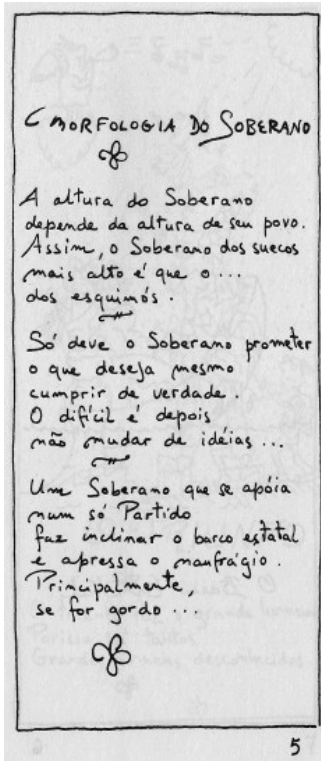 MORFOLOGIA DO SOBERANO
A altura do Soberano
depende da altura de seu povo.
Assim, o Soberano dos suecos
mais alto é que o ...
dos esquimós.
Só deve o Soberano prometer
o que deseja mesmo
cumprir de verdade.
O difícil é depois
não mudar de idéias ...
Um Soberano que se apóia
num só Partido
faz inclinar o barco estatal
e apressa o naufrágio.
Principalmente,
se for gordo ...
5